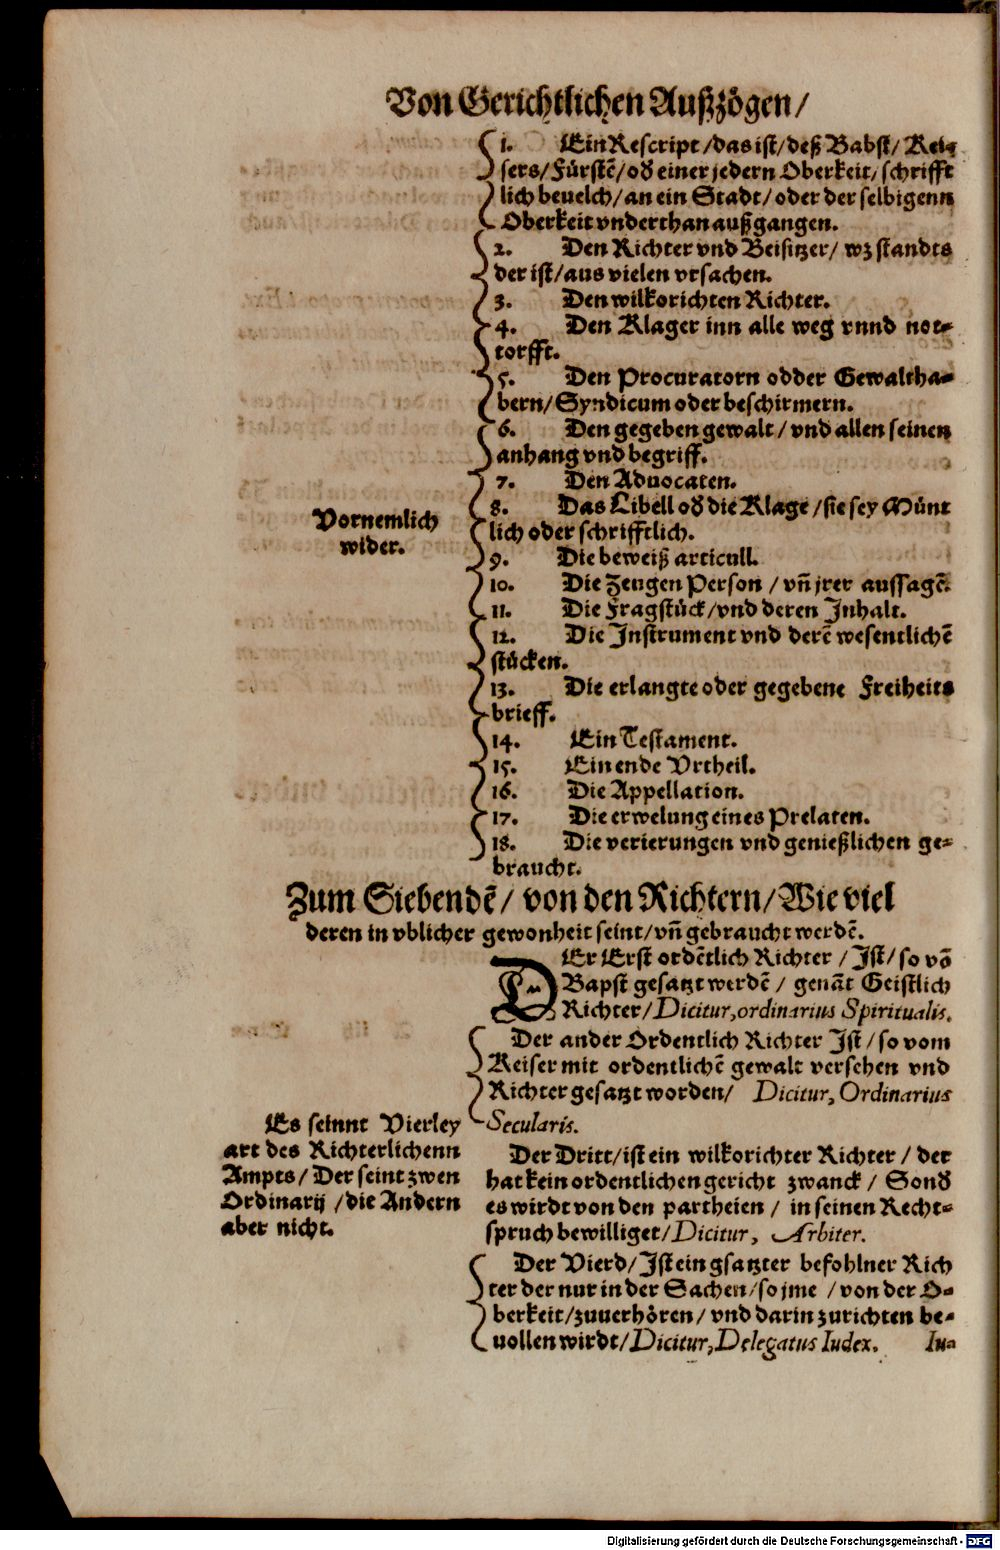 Von Gerichtlichen Außzögen/
1. Ein Rescript/das ist/deß Babst/ Kei-
sers/Fürstē/oď einer jedern Oberkeit/schrifft
lich beuelch/an ein Stadt/oder der selbigenn
Oberkeit vnderthan außgangen.
2. Den Richter vnd Beisitzer/ wz standts
der ist/aus vielen vrsachen.
3. Den wilkorichten Richter.
4. Den Klager inn alle weg vnnd not-
torfft.
5. Den Procuratorn odder Gewaltha-
bern/Syndicum oder beschirmern.
6. Den gegeben gewalt/vnd allen seinen
anhang vnd begriff.
7. Den Aduocaten.
Vornemlich
wider.
8. Das Libell oď die Klage/sie sey Münt
lich oder schrifftlich.
9. Die beweiß articull.
10. Die Zeugen Person/vñ jrer aussagē.
11. Die Fragstück/vnd deren Inhalt.
12. Die Instrument vnd derē wesentlichē
stücken.
13. Die erlangte oder gegebene Freiheits
brieff.
14. Ein Testament.
15. Ein ende Vrtheil.
16. Die Appellation.
17. Die erwelung eines Prelaten.
18. Die verierungen vnd genießlichen ge-
braucht.
Zum Siebendē/ von den Richtern/Wie viel
deren in vblicher gewonheit seint/vñ gebraucht werdē.
DEr Erst ordētlich Richter/Ist/so vō
Bapst gesatzt werdē/ genāt Geistlich
Richter/Dicitur,ordinarius Spiritualis.
Der ander Ordentlich Richter Ist/so vom
Keiser mit ordentlichē gewalt versehen vnd
Richter gesatzt worden/ Dicitur, Ordinarius
Secularis.
Es seinnt Vierley
art des Richterlichenn
Ampts/Der seint zwen
Ordinarij/die Andern
aber nicht.
Der Dritt/ist ein wilkorichter Richter/der
hat kein ordentlichen gericht zwanck/ Sonď
es wirdt von den partheien/ in seinen Recht-
spruch bewilliget/Dicitur, Arbiter.
Der Vierd/Ist ein gsatzter befohlner Rich
ter der nur in der Sachen/so jme/von der O-
berkeit/zuuerhören/vnd darin zurichten be-
uollen wirdt/Dicitur,Delegatus Iudex. Iu-
Digitalisierung gefördert durch die Deutsche Forschungsgemeinschaft - DFG